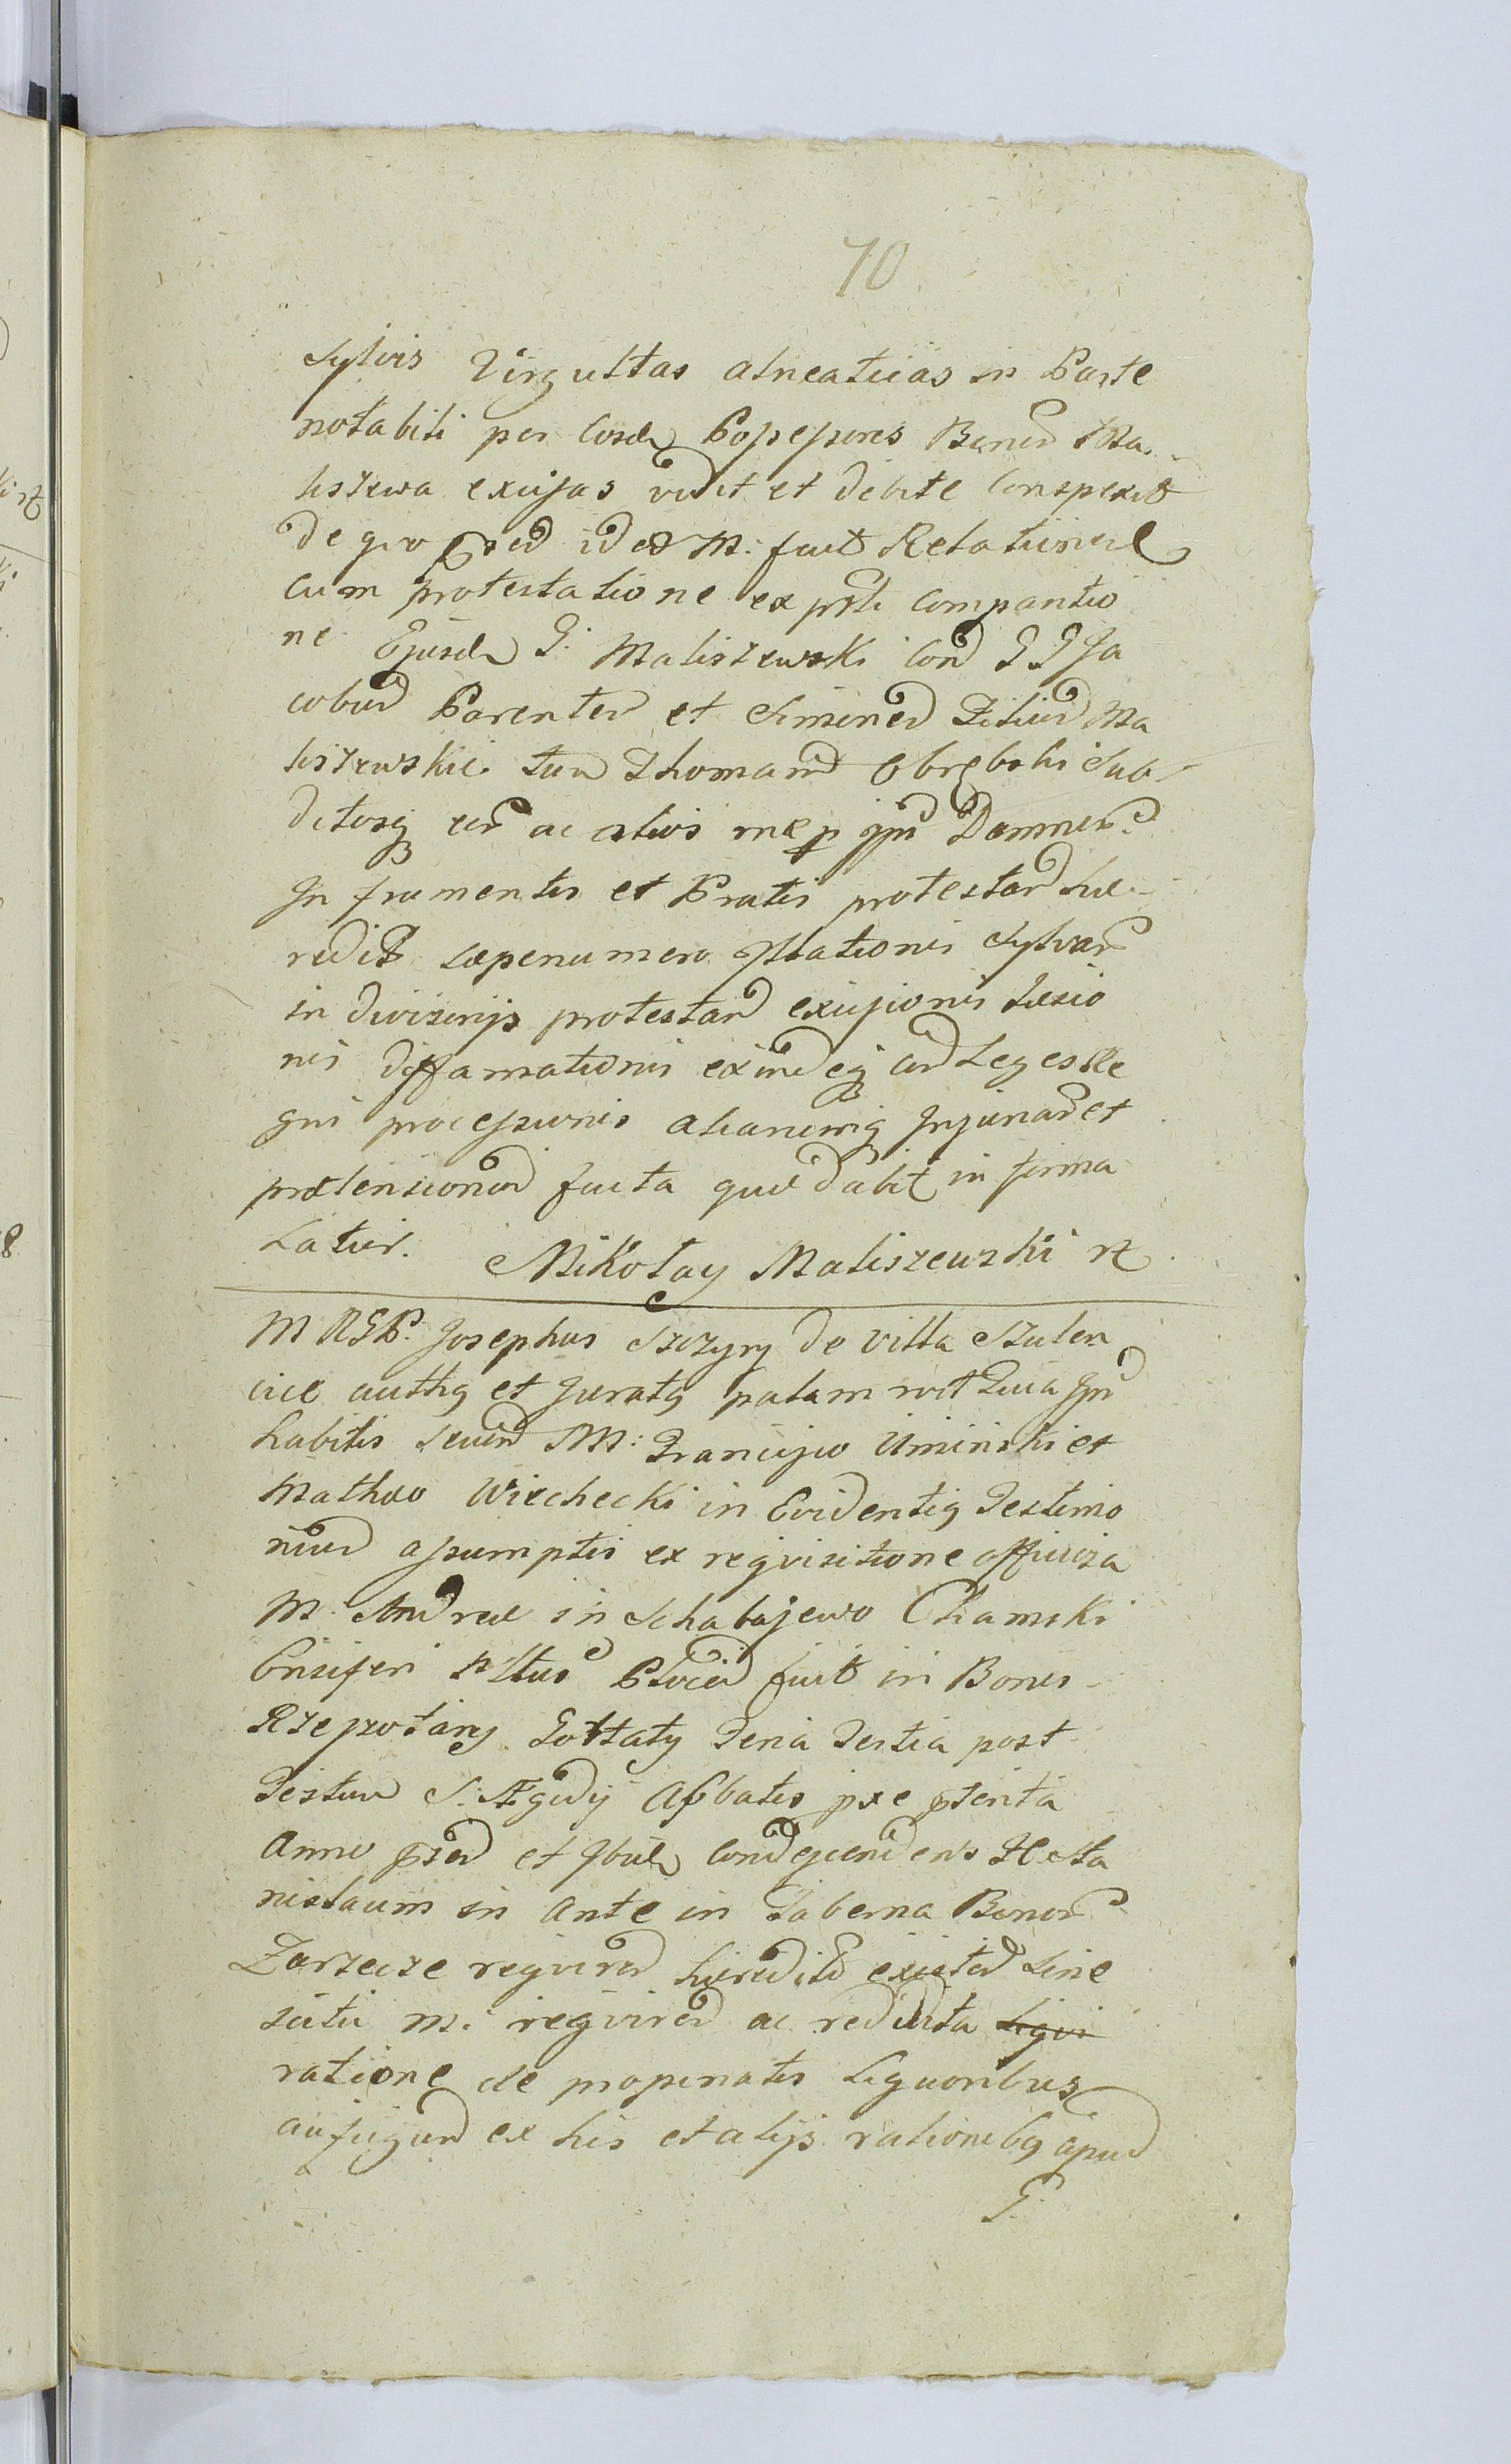 70
Sylvis Virgultas alneaticias in Parte
notabili per Eosd Possessores Bonor Ma
liszewa excisas vidit et debite conspexit
de quo præd idem M: fecit Relationem
cum protestatione ex prti comparitio
ne Ejusd G. Maliszewski con G G Ja
cobum Parentem et Simonem Filium Ma
liszewskie tum Thomam Obrębski Sub
ditosq ac alios
In frumentis et Pratis protestan hæ
redit sæpenumero Sylvar
in divisorijs protestan excisionis Læsio
nis diffamationis exindeq con Leges Re
gni processionis aliarumq Injuriar et
prætensionum facta quæ dabit in forma
Latior. Mikołay Maliszewski rz
M RGP. Josephus Szczyry de villa Szulen
cice autthq et Juratq palam rec Quia Ipse
habitis secum M: Francisco Uminski et
Matheo Wierchecki in Evidentiq Testimo
nium assumptis ex reqvisitione officiosa
M. Andreæ in Schabajewo Chamski
Ensiferi Pltus Plocen fuit in Bonis
Rzeszotary Gottaty Feria Tertia post
Festum S. Ægidij Abbatis pxe pterita
Anno præd et Ibid condescendens H Sta
nislaum in Ante in Taberna Bonor
Zarzecze reqviren hæredit existen sine
scitu M. reqviren ac reddita Liqvi
ratione de propinatis Liquoribus
aufugum ex his et alijs rationibq apud
G.